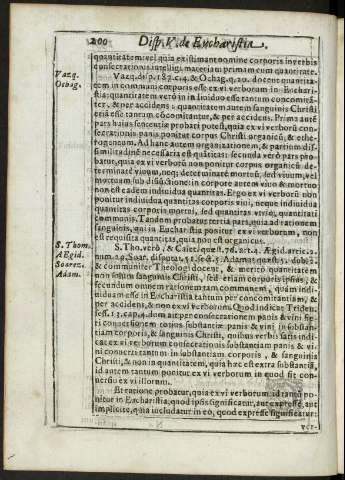 200 Disp. V. de Eucharistia.
quantitatem: vel quia existimant nomine corporis in verbis
consecrationis intelligi materiam primam cum quantitate.
Vazq.
Ochag.
Vazq. disp. 187. c. 4. & Ochag. q. 20. docent quantita-
tem in communi corporis esse ex vi verborum in Euchari-
stia: quantitatem verò in individuo esse tantum concomitā-
ter, & per accidens: quantitatem autem sanguinis Christi
etiā esse tantum cōcomitanter, & per accidens. Prima autē
pars huius sententiæ probari potest, quia ex vi verborū con-
secrationis panis ponitur corpus Christi organicū, & ethe-
rogeneum. Ad hanc autem organizationem, & partium dis-
similitudinē necessaria est quātitas: secunda verò pars pro-
batur, quia ex vi verborū non ponitur corpus organicū de-
terminatè vivum, neq; determinatè mortuū, sed vivum, vel
mortuum sub disiunctione: in corpore autem vivo & mortuo
non est eadem individua quantitas. Ergo ex vi verborū non
ponitur individua quantitas corporis vivi, neque individua
quantitas corporis mortui, sed quantitas variè, quantitati
communis. Tandem probatur tertia pars, quia ad rationem
sanguinis, qui in Eucharistia ponitur ex vi verborum, non
est requisita quantitas, quia non est organicus.
S. Thom.
AEgid.
Soarez.
Adam.
S. Tho. verò, & Caiet. quæst. 76. art. 4. Ægid. artic. 2.
num. 29. Soar. disputat. 51. sect. 5. Adamat. quæst. 5. dub. 2.
& communiter Theologi docent, & meritò quantitatem
non solum sanguinis Christi, sed etiam corporis ipsius, &
secundum omnem rationem tam communem, quàm indi-
viduam esse in Eucharistia tantum per concomitantiam, &
per accidens, & non ex vi verborum. Quod indicat Triden.
sess. 13. cap. 4. dum ait per consecrationem panis & vini fie-
ri conversionem totius substantiæ panis & vini in substan-
tiam corporis, & sanguinis Christi, quibus verbis satis indi-
cat ex vi verborum consecrationis substantiam panis & vi-
ni converti tantum in substantiam corporis, & sanguinis
Christi, & non in quantitatem, quia hæc est extra substantiā,
id autem tantum ponitur ex vi verborum in quod sit con-
versio ex vi illorum.
Et ratione probatur, quia ex vi verborum id tantū po-
nitur in Eucharistia, quod ipsis significatur, aut expressè, aut
implicitè, quia includatur in eo, quod expressè significatur: